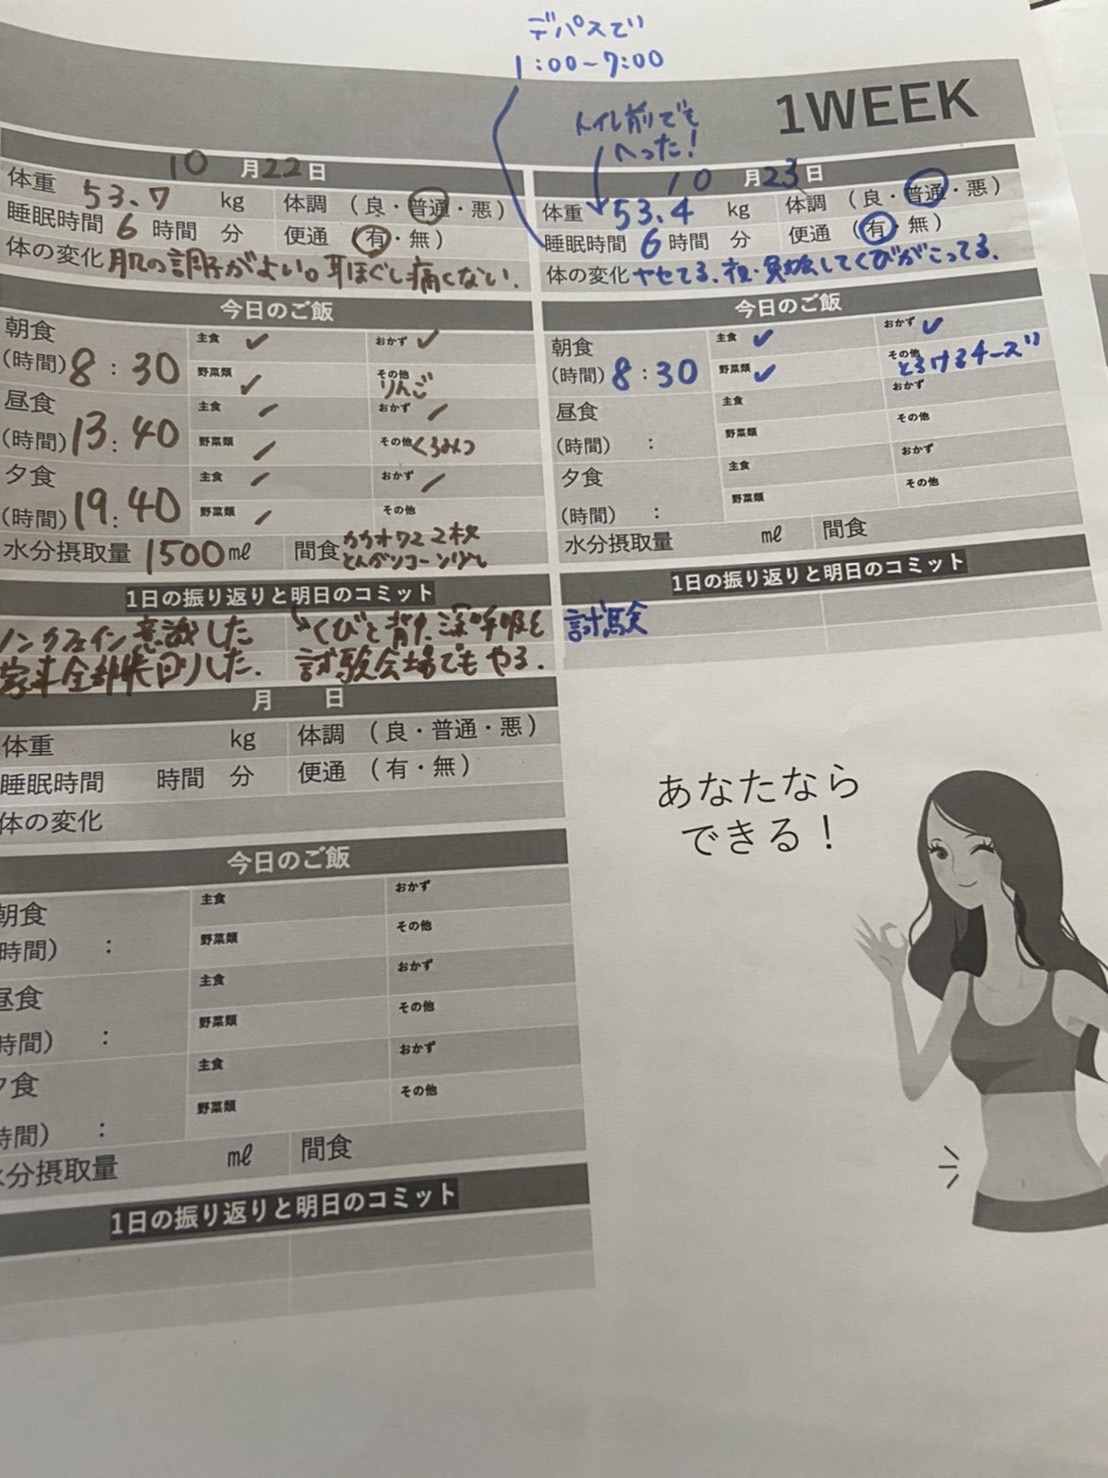 デパスで
1:00~7:00
トイレ前でも
へった!
1WEEK
10月22日
体重 53.7 kg 体調 (良・普通・悪)
睡眠時間 6 時間 分 便通 (有・無)
体の変化 肌の調子がよい。耳ほぐし痛くない.
今日のご飯
朝食 主食 ✓ おかず ✓
(時間) 8:30 野菜類 ✓ その他 りんご
昼食 主食 ✓ おかず ✓
(時間) 13:40 野菜類 ✓ その他 くるみ
夕食 主食 ✓ おかず ✓
(時間) 19:40 野菜類 ✓ その他
水分摂取量 1500 ㎖ 間食 カカオ72 2枚
とんがりコーン少し
1日の振り返りと明日のコミット
ノンカフェイン意識した くびと背中、深呼吸を
した. 試験会場でもやる.
10月23日
体重 53.4 kg 体調 (良・普通・悪)
睡眠時間 6 時間 分 便通 (有・無)
体の変化 ヤセてる.夜・勉強してくびがこってる.
今日のご飯
朝食 主食 ✓ おかず ✓
(時間) 8:30 野菜類 ✓ その他 とろけるチーズ
昼食 主食 おかず
(時間) : 野菜類 その他
夕食 主食 おかず
(時間) : 野菜類 その他
水分摂取量 ㎖ 間食
1日の振り返りと明日のコミット
試験
月 日
体重 kg 体調 (良・普通・悪)
睡眠時間 時間 分 便通 (有・無)
体の変化
今日のご飯
朝食 主食 おかず
時間) : 野菜類 その他
昼食 主食 おかず
時間) : 野菜類 その他
夕食 主食 おかず
時間) : 野菜類 その他
水分摂取量 ㎖ 間食
1日の振り返りと明日のコミット
あなたなら
できる!